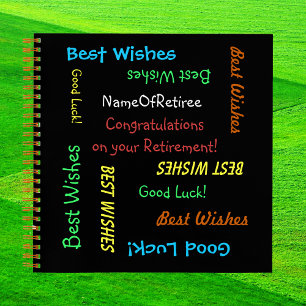 Best Wishes
Best Wishes
Best Wishes
Good Luck!
NameOfRetiree
Congratulations
on your Retirement!
Best Wishes
BEST WISHES
BEST WISHES
Good Luck!
Best Wishes
Good Luck!